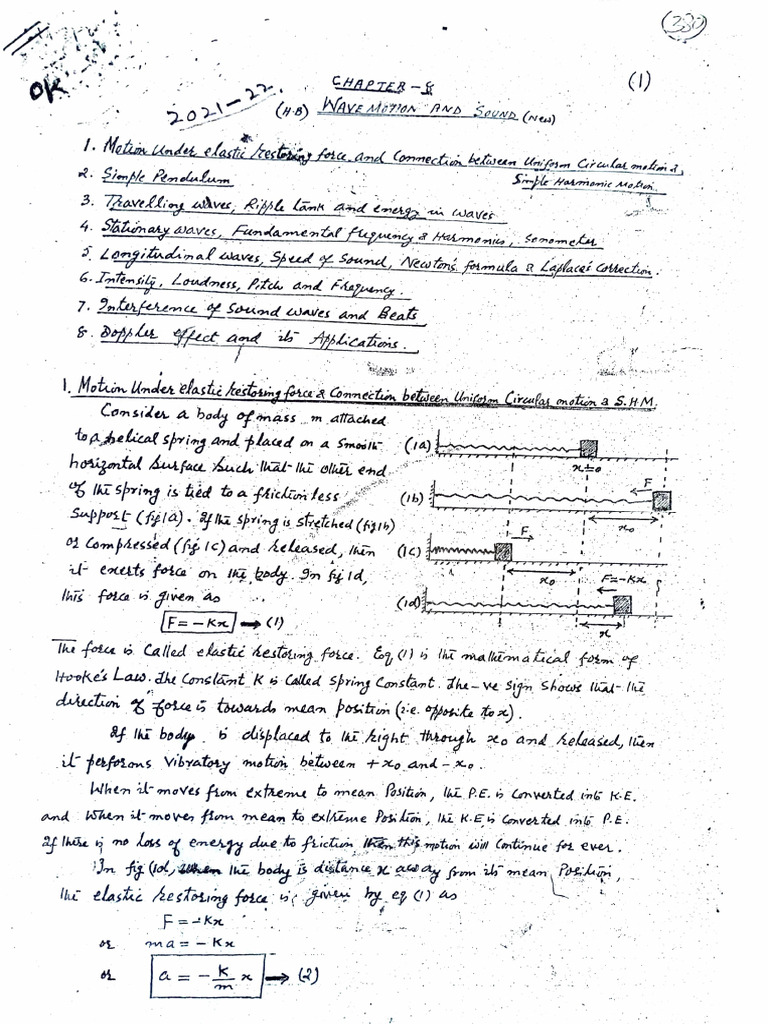 (230)
OK
(1)
CHAPTER-8
2021-22.
(H.B) WAVE MOTION AND SOUND (New)
1. Motion Under elastic restoring force and Connection between Uniform Circular motion &
Simple Harmonic Motion.
2. Simple Pendulum
3. Travelling waves, Ripple tank and energy in waves
4. Stationary waves, Fundamental frequency & Harmonics, Sonometer
5. Longitudinal waves, Speed of Sound, Newton's formula & Laplace's Correction.
6. Intensity, Loudness, Pitch and Frequency.
7. Interference of Sound waves and Beats
8. Doppler effect and its Applications.
1. Motion Under elastic restoring force & Connection between Uniform Circular motion & S.H.M.
Consider a body of mass m attached
to a helical spring and placed on a smooth
horizontal surface such that the other end
of the spring is tied to a frictionless
support (fig 1a). If the spring is stretched (fig 1b)
or compressed (fig 1c) and released, then
it exerts force on the body. In fig 1d,
this force is given as
F = -Kx → (1)
(1a)
x=0
(1b)
F
x₀
(1c)
F
x₀
(1d)
F=-Kx
x
The force is called elastic restoring force. Eq (1) is the mathematical form of
Hooke's Law. The constant K is called Spring Constant. The -ve sign shows that the
direction of force is towards mean position (i.e. opposite to x).
If the body is displaced to the right through x₀ and released, then
it performs vibratory motion between +x₀ and -x₀.
When it moves from extreme to mean Position, the P.E. is converted into K.E.
and when it moves from mean to extreme Position, the K.E is converted into P.E.
If there is no loss of energy due to friction then this motion will continue for ever.
In fig (1d), when the body is distance x away from its mean Position,
the elastic restoring force is given by eq (1) as
F = -Kx
or ma = -Kx
or a = -K/m x → (2)